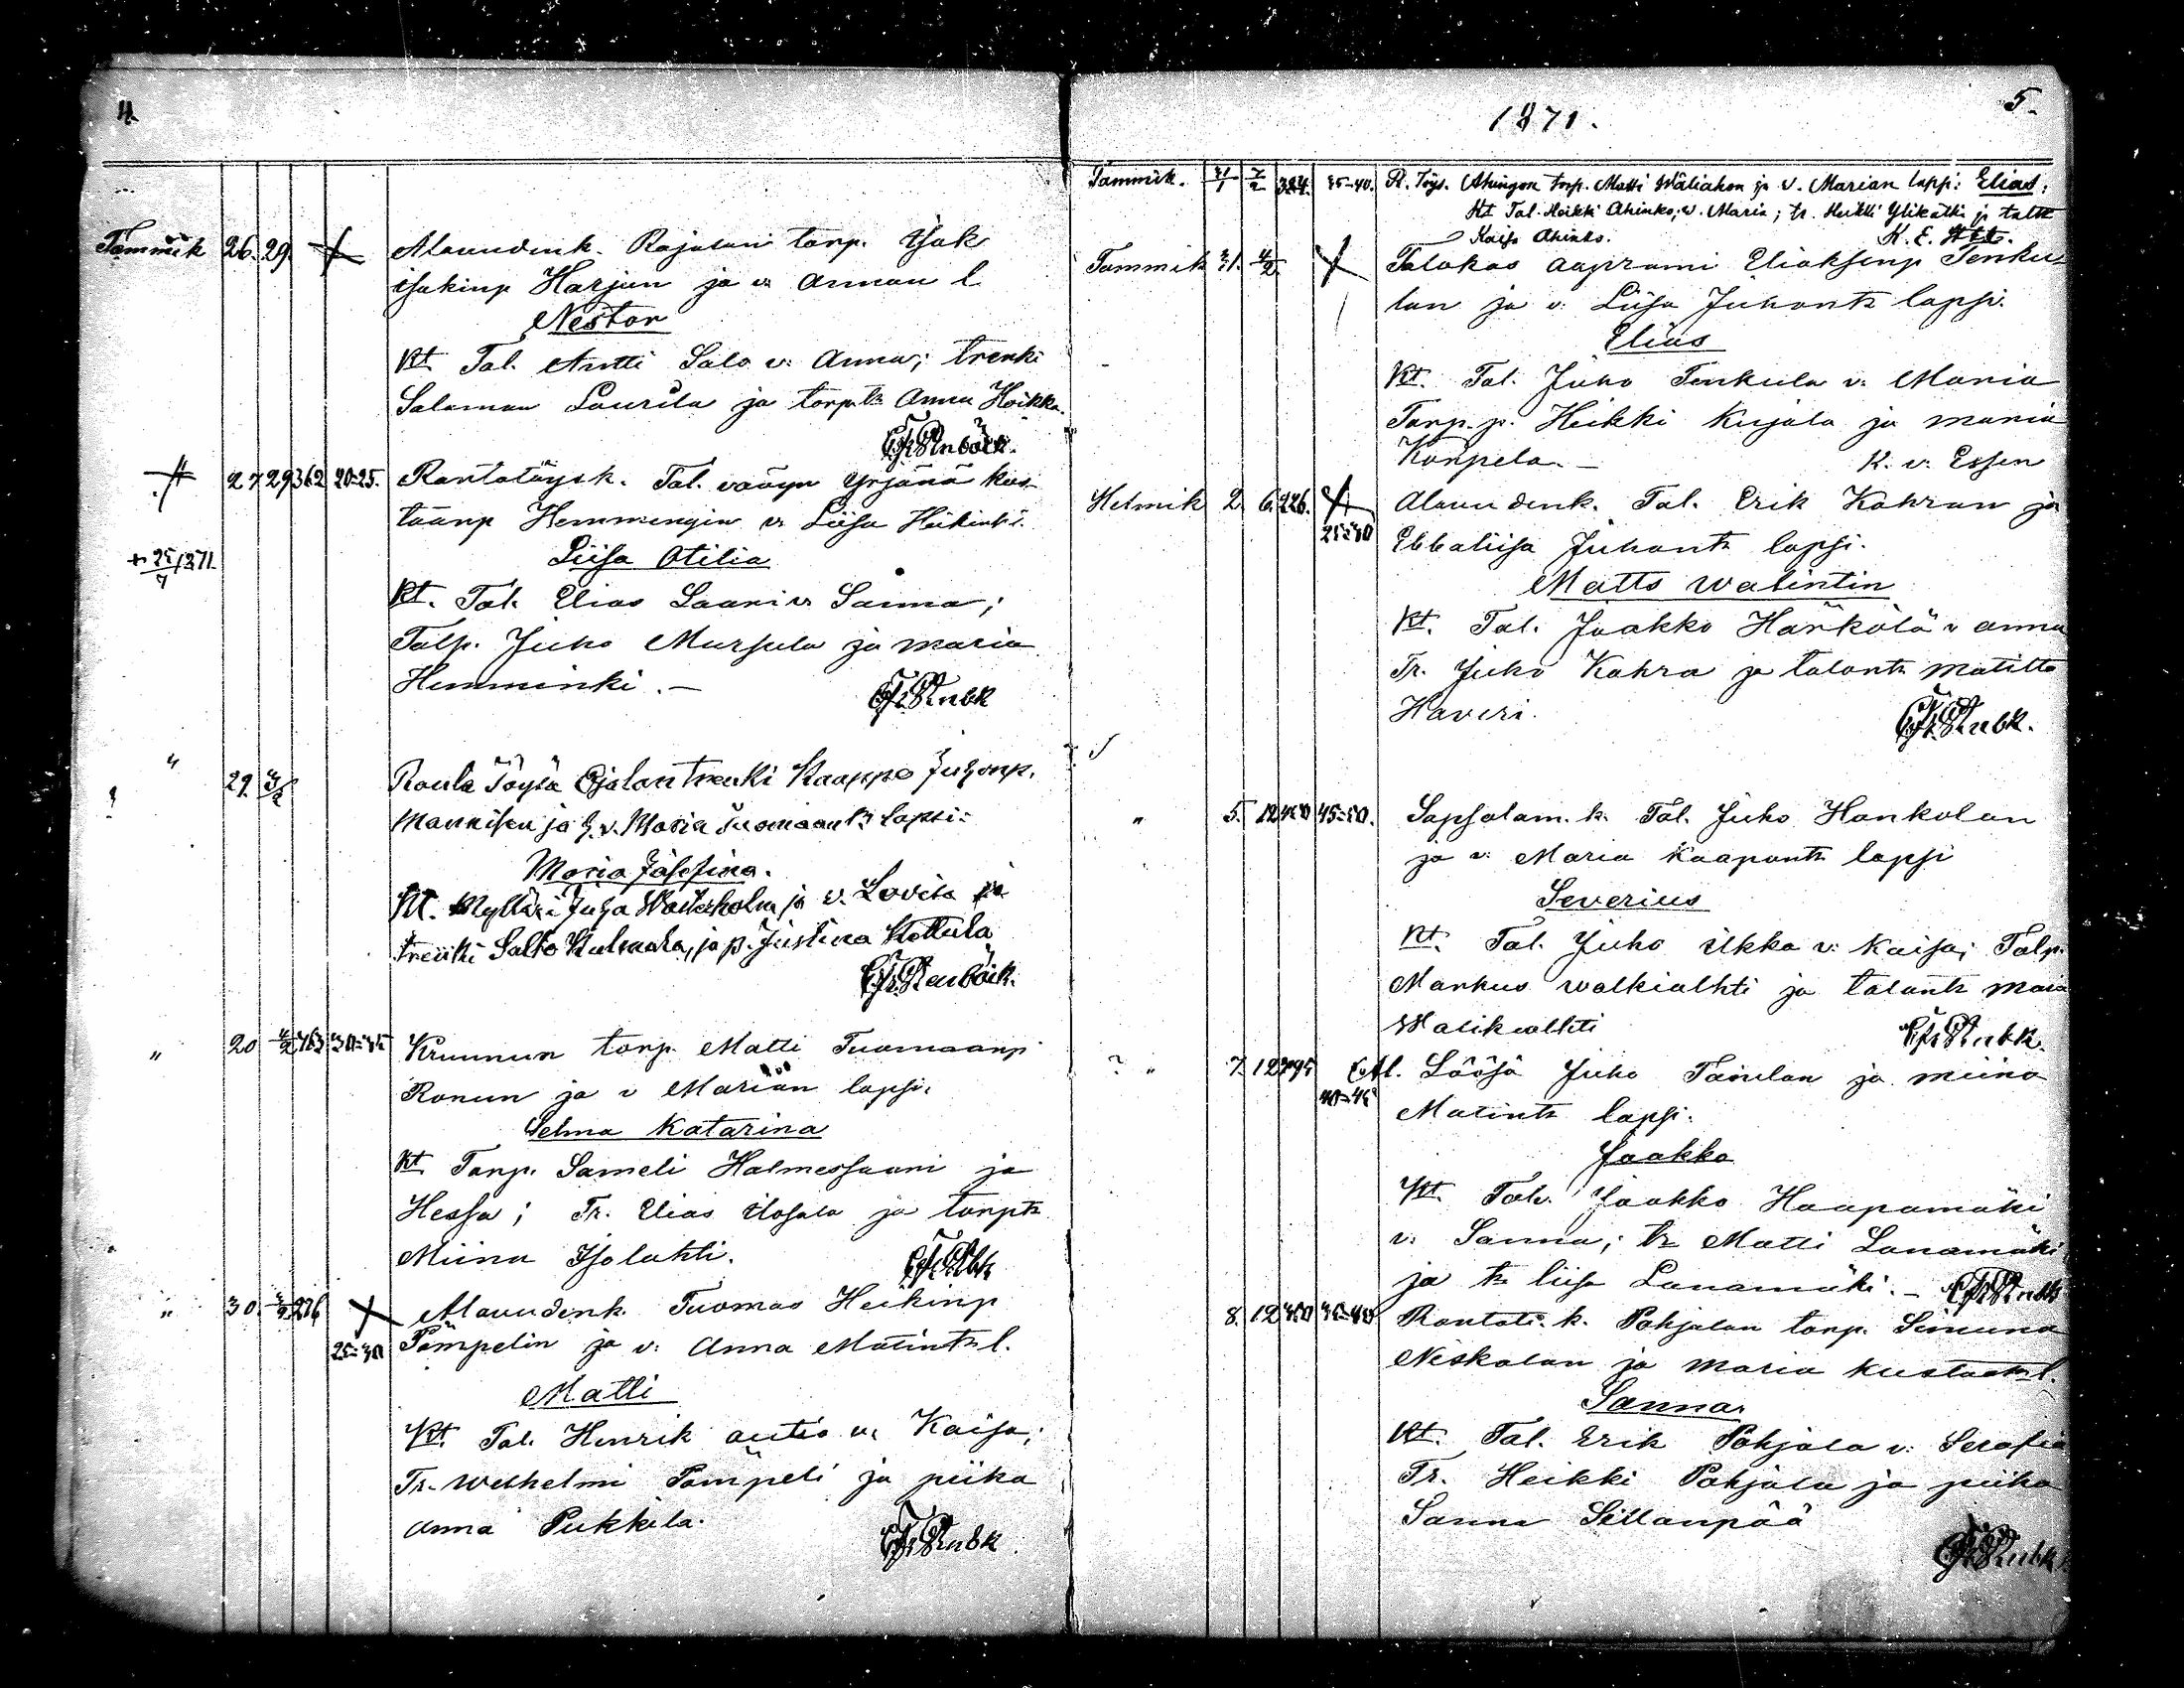 4.
Tammik 26. 29. Alavudenk. Rajalan torp. Isak
isakinp Harjun ja v: Annan l.
Nestor
Kt. Tal. Antti Salo v: Anna; trenki
Salaman Laurila ja torp.tr Anna Hoikka.
27 29 362 20-25. Rantatöys.k. Tal. vävyn Yrjänä kus-
taanp Hemmingin v: Liisa Heikintr.
Liisa Otilia
+ 25/7 1871.
Kt. Tal. Elias Laari v: Sanna;
Talp. Juho Mursula ja maria
Hemminki. —
" 29. 3/2 Ranta Töysä Ojalan trenki Kaappo Juhonp.
Mannisen ja h. v. Maria Tuomaantr. lapsi:
Maria Josefina.
Kt. Mylläri Juha Westerholm ja v. Lovisa ja
trenki Salo Kulmala, ja p. Justina Kottula
" 20 4/2 463 30-35 Kruunun torp. Matti Tuomaanp
Ronun ja v Marian lapsi.
Selma Katarina
Kt. Torp. Sameli Halmessaari ja
Hessa; Tr. Elias Ilosala ja torptr
Miina Isolahti.
" 30. 5/2 226 Alavudenk. Tuomas Heikinp
25-30 Pömpelin ja v: Anna Matintr l.
Matti
Kt. Tal. Henrik autio v: Kaisa;
Tr. Wilhelmi Pömpeli ja piika
Anna Pukkila.
1871.
5.
Tammik. 31/1 7/2 324. 35-40. R. Töys. Ahingon torp. Matti Wäliahon ja v. Marian laps: Elias;
Kt Tal. Heikki Ahinko; v. Maria; tr. Heikki Ylikätki ja taltr
Kaisa Ahinko.
Tammik 31. 4/2. Talokas aaprami Eliaksenp Tenku-
lan ja v: Liisa Juhontr lapsi.
Elias
Kt. Tal. Juho Tenkula v: Maria
Torp.p. Heikki Kujala ja maria
Korpela. — K. v: Essen
Helmik 2. 6. 226. Alavudenk. Tal. Erik Kahran ja
25-30 Ebbaliisa Juhontr lapsi.
Matts walintin
Kt. Tal. Jaakko Härkölä v anna
Tr. Juho Kahra ja talontr matilta
Haveri.
" 5. 12 450 45-50. Sapsalam.k. Tal. Juho Hankolan
ja v: Maria Kaapontr lapsi
Severius
Kt. Tal. Juho Ukka v: Kaisa; Talp.
Markus walkialhti ja talontr maria
Walikalhti
" 7. 12 Al. Löösä Juho Tanulan ja miina
40-45 Matintr lapsi.
Jaakko
Kt. Tal. Jaakko Haapamäki
v: Sanna; tr Matti Lanamäki
ja tr liisa Lanamäki. —
8. 12 450 35-40 Rantatö.k. Pohjalan torp. Simuna
Niskalan ja maria kustaatr l.
Sanna
Kt. Tal. Erik Pohjala v: Serafia
Tr. Heikki Pohjala ja piika
Sanna Sillanpää